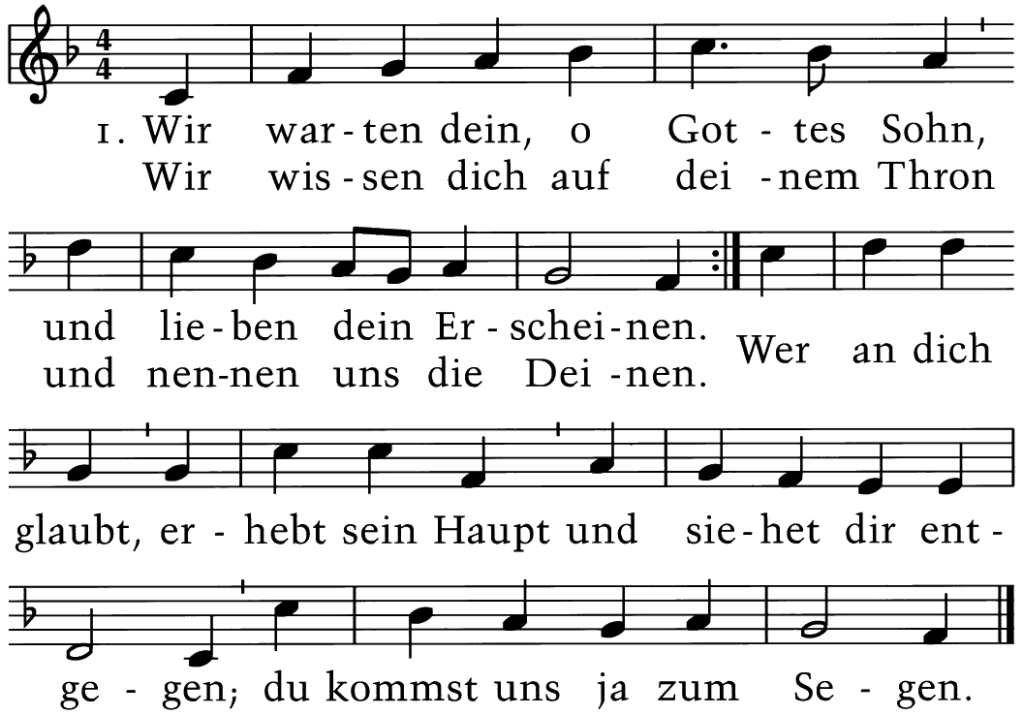 1. Wir war - ten dein, o Got - tes Sohn,
Wir wis - sen dich auf dei - nem Thron
und lie - ben dein Er - schei - nen.
und nen - nen uns die Dei - nen.
Wer an dich
glaubt, er - hebt sein Haupt und sie - het dir ent -
ge - gen; du kommst uns ja zum Se - gen.